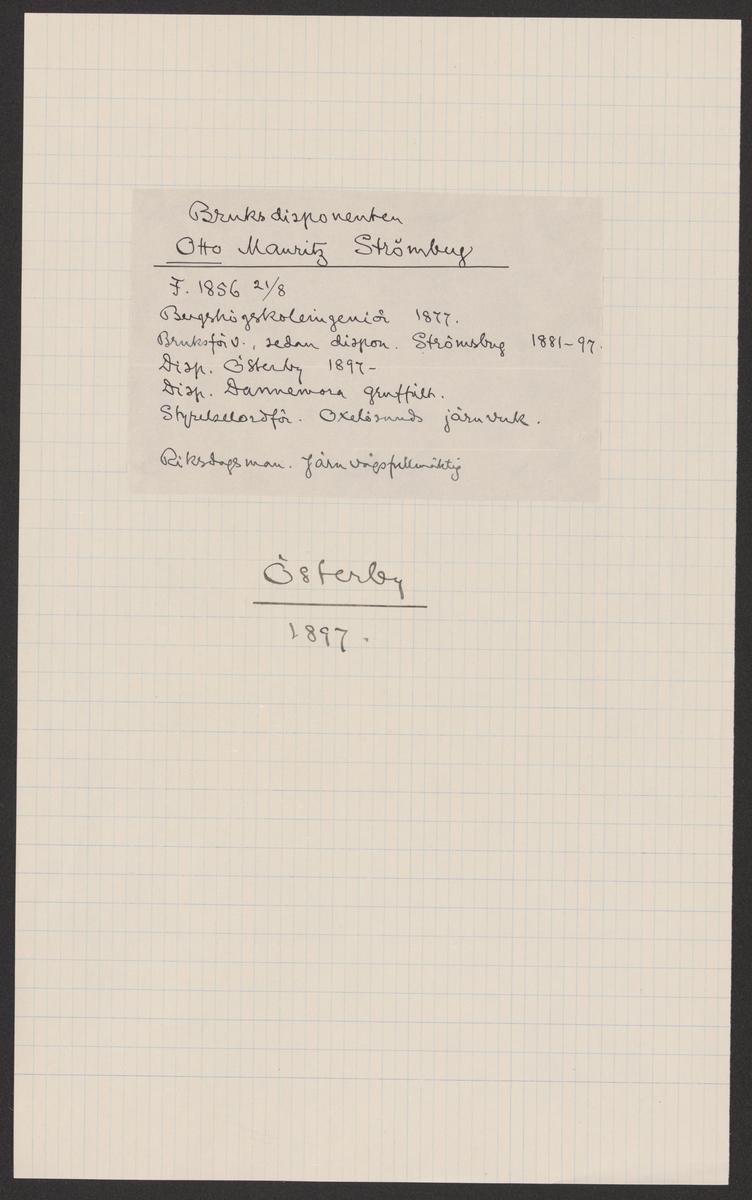 Bruksdisponenten
Otto Mauritz Strömberg
F. 1856 21/8
Bergshögskoleingeniör 1877.
Bruksförv., sedan dispon. Strömsbrg 1881-97.
Disp. Österby 1897-
Disp. Dannemora gruffält.
Styrelseordför. Oxelösunds järnverk.
Riksdagsman. Järnvägsfullmäktig
Österby
1897.